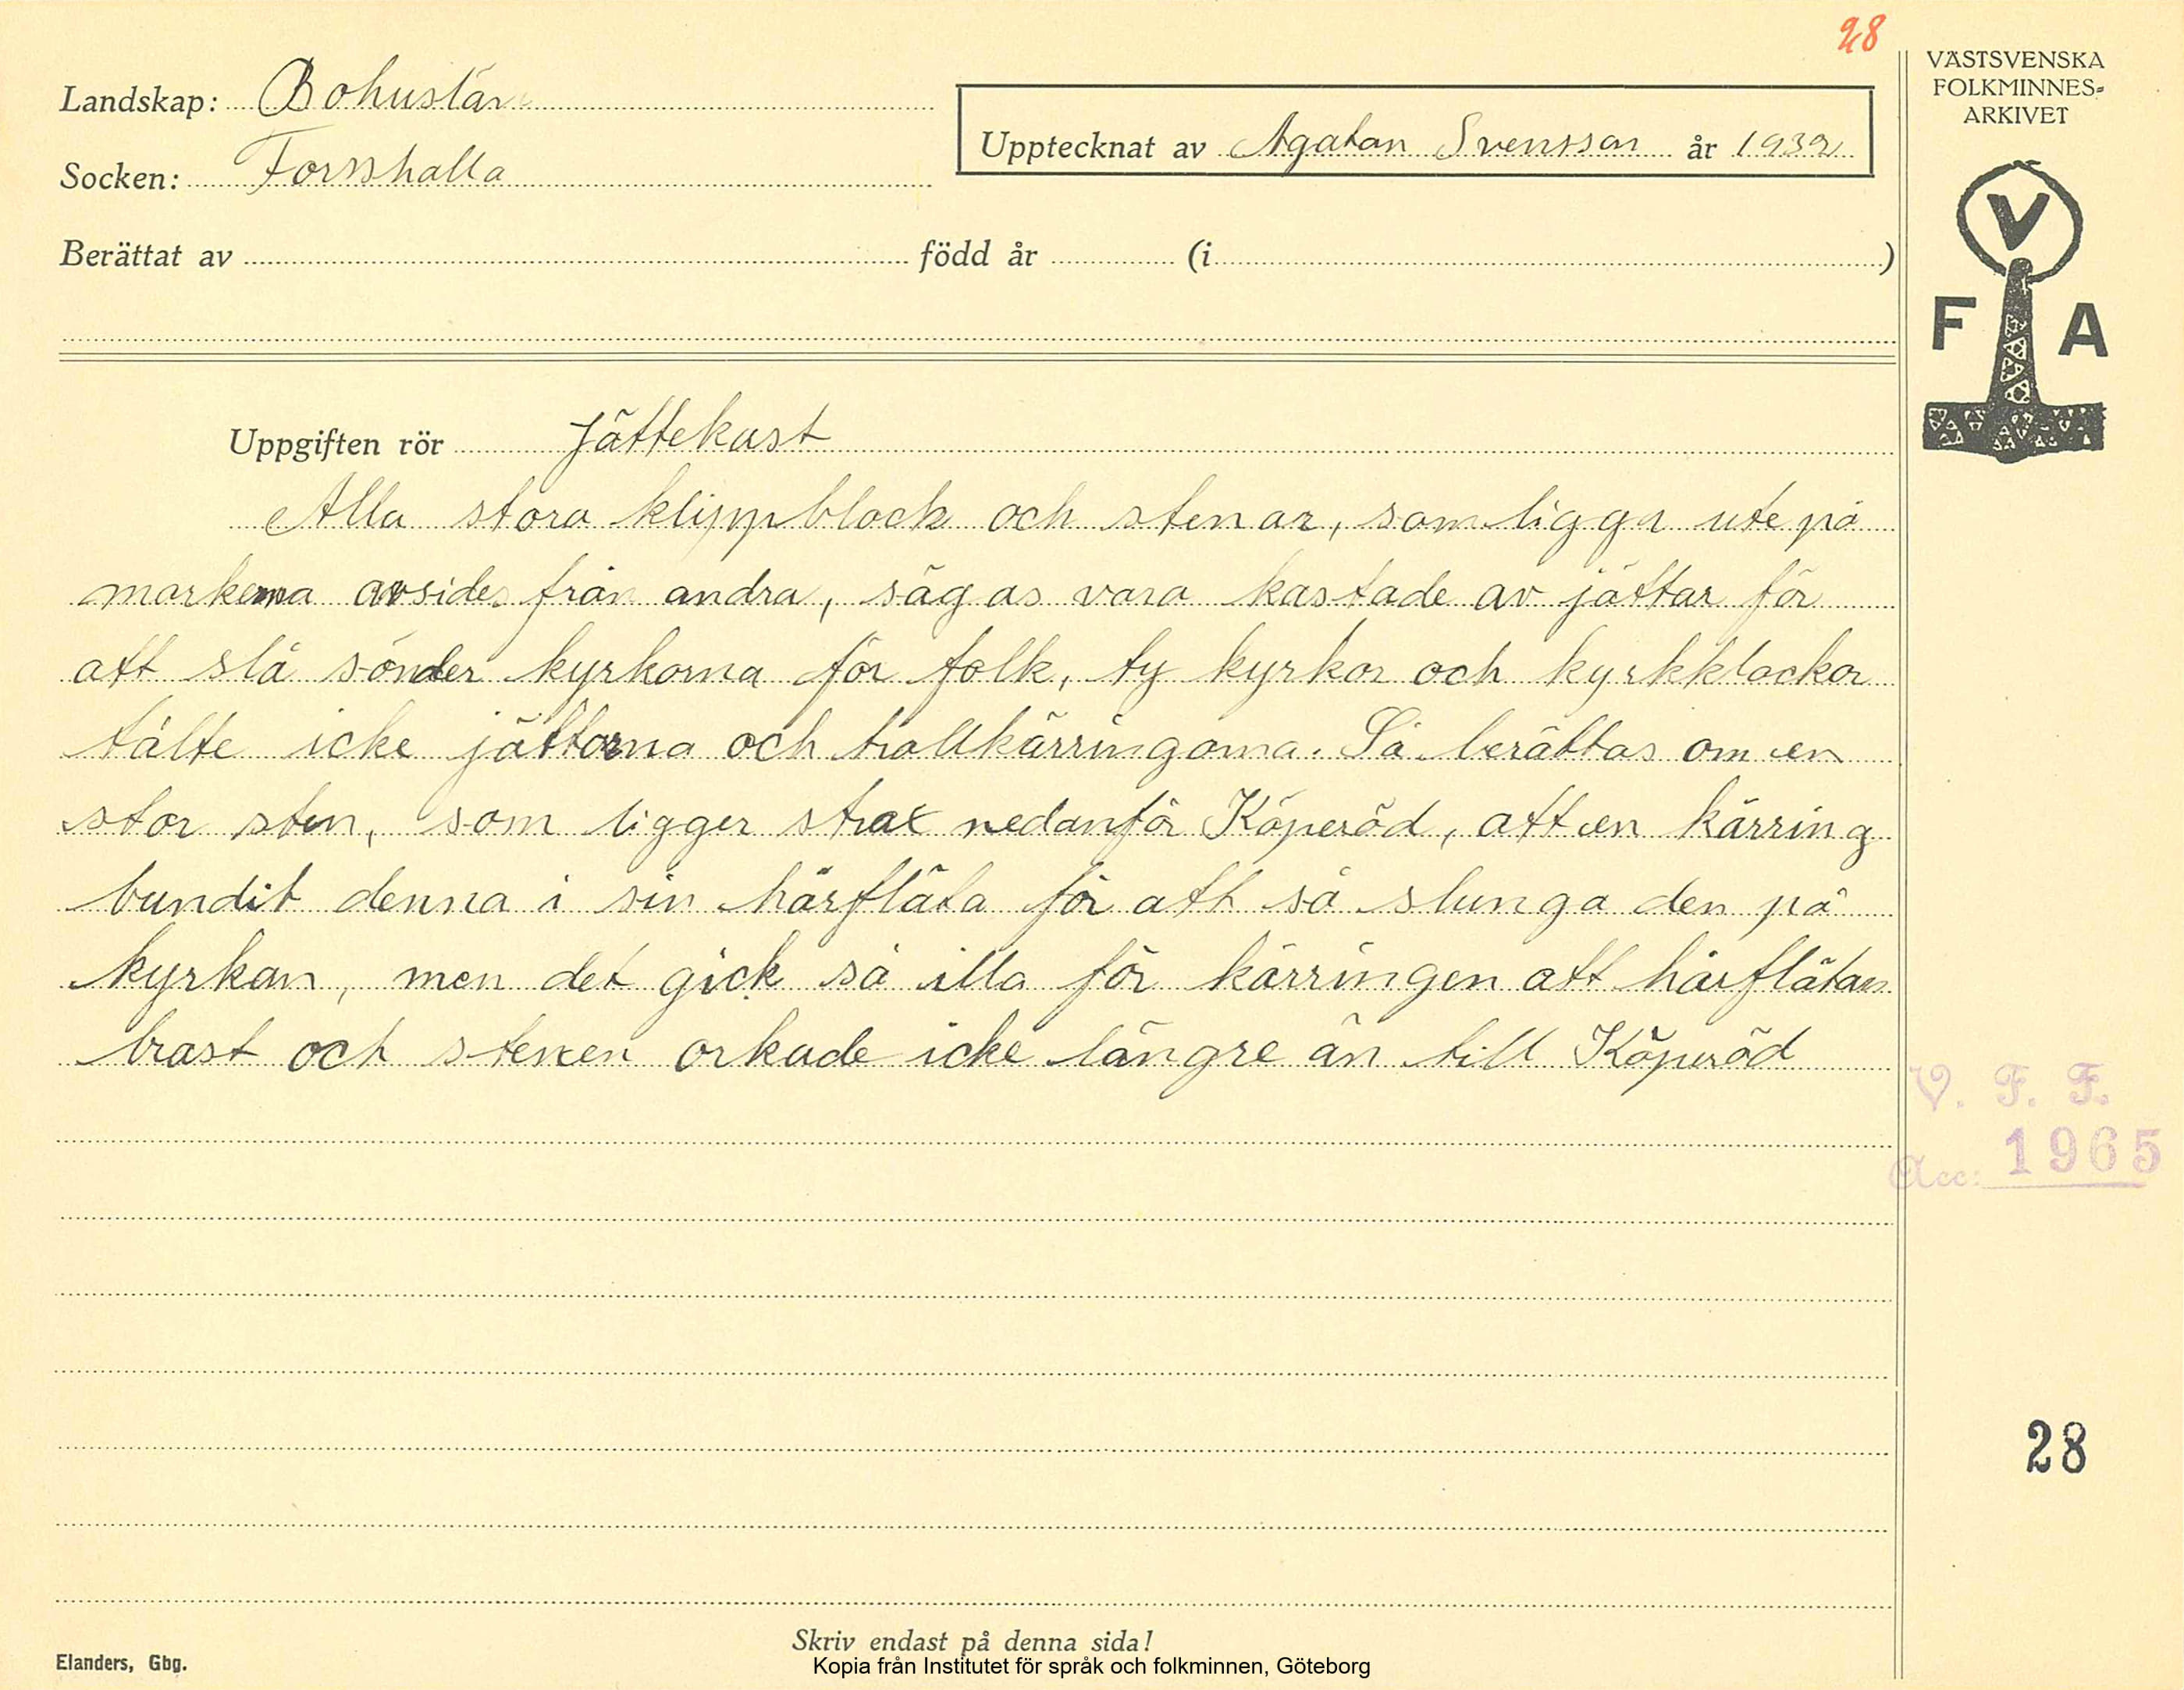 28
VÄSTSVENSKA
FOLKMINNES-
ARKIVET
Landskap: Bohuslän
Upptecknat av Agatan Svensson år 1932
Socken: Forshälla
Berättat av född år (i )
V
F A
Uppgiften rör Jättekast
Alla stora klippblock och stenar, som ligga ute på
markerna avsides från andra, sägas vara kastade av jättar för
att slå sönder kyrkorna för folk, ty kyrkor och kyrkklockor
tålte icke jättarna och trollkärringarna. Så berättas om en
stor sten, som ligger strax nedanför Köperöd, att en kärring
bundit denna i sin hårfläta för att så slunga den på
kyrkan, men det gick så illa för kärringen att hårflätan
brast och stenen orkade icke längre än till Köperöd
V. F. F.
Acc: 1965
28
Skriv endast på denna sida!
Elanders, Gbg.
Kopia från Institutet för språk och folkminnen, Göteborg